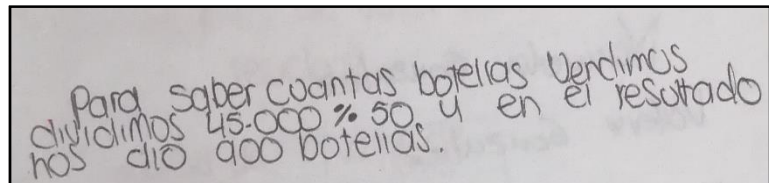 Para saber cuantas botellas Vendimos
dividimos 45.000 % 50 y en el resultado
nos dio 900 botellas.